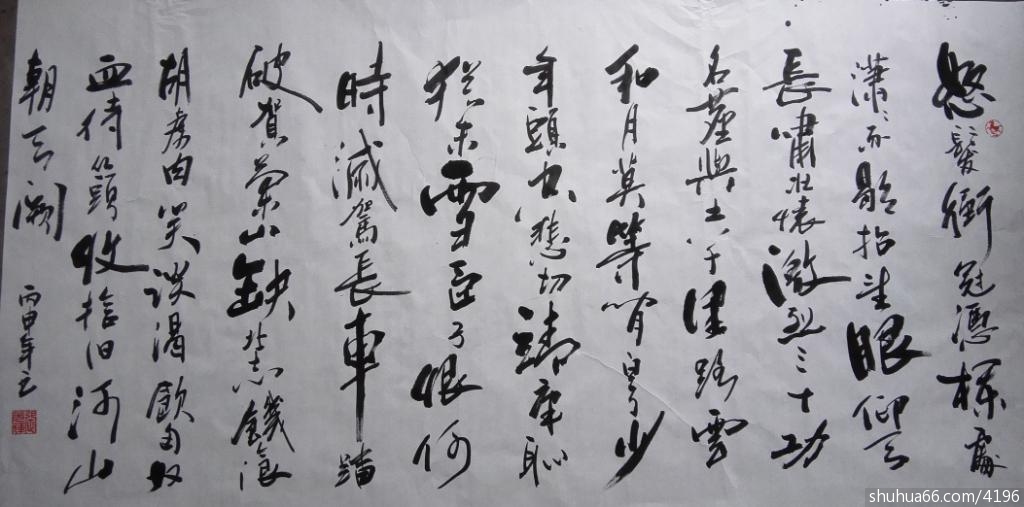 怒髮衝冠憑欄處
瀟瀟雨歇抬望眼仰天
長嘯壯懷激烈三十功
名塵與土八千里路雲
和月莫等閒白了少
年頭空悲切靖康恥
猶未雪臣子恨何
時滅駕長車踏
破賀蘭山缺壯志饑湌
胡虜肉笑談渴飲匈奴
血待從頭收拾旧河山
朝天闕
丙申年
shuhua66.com/4196